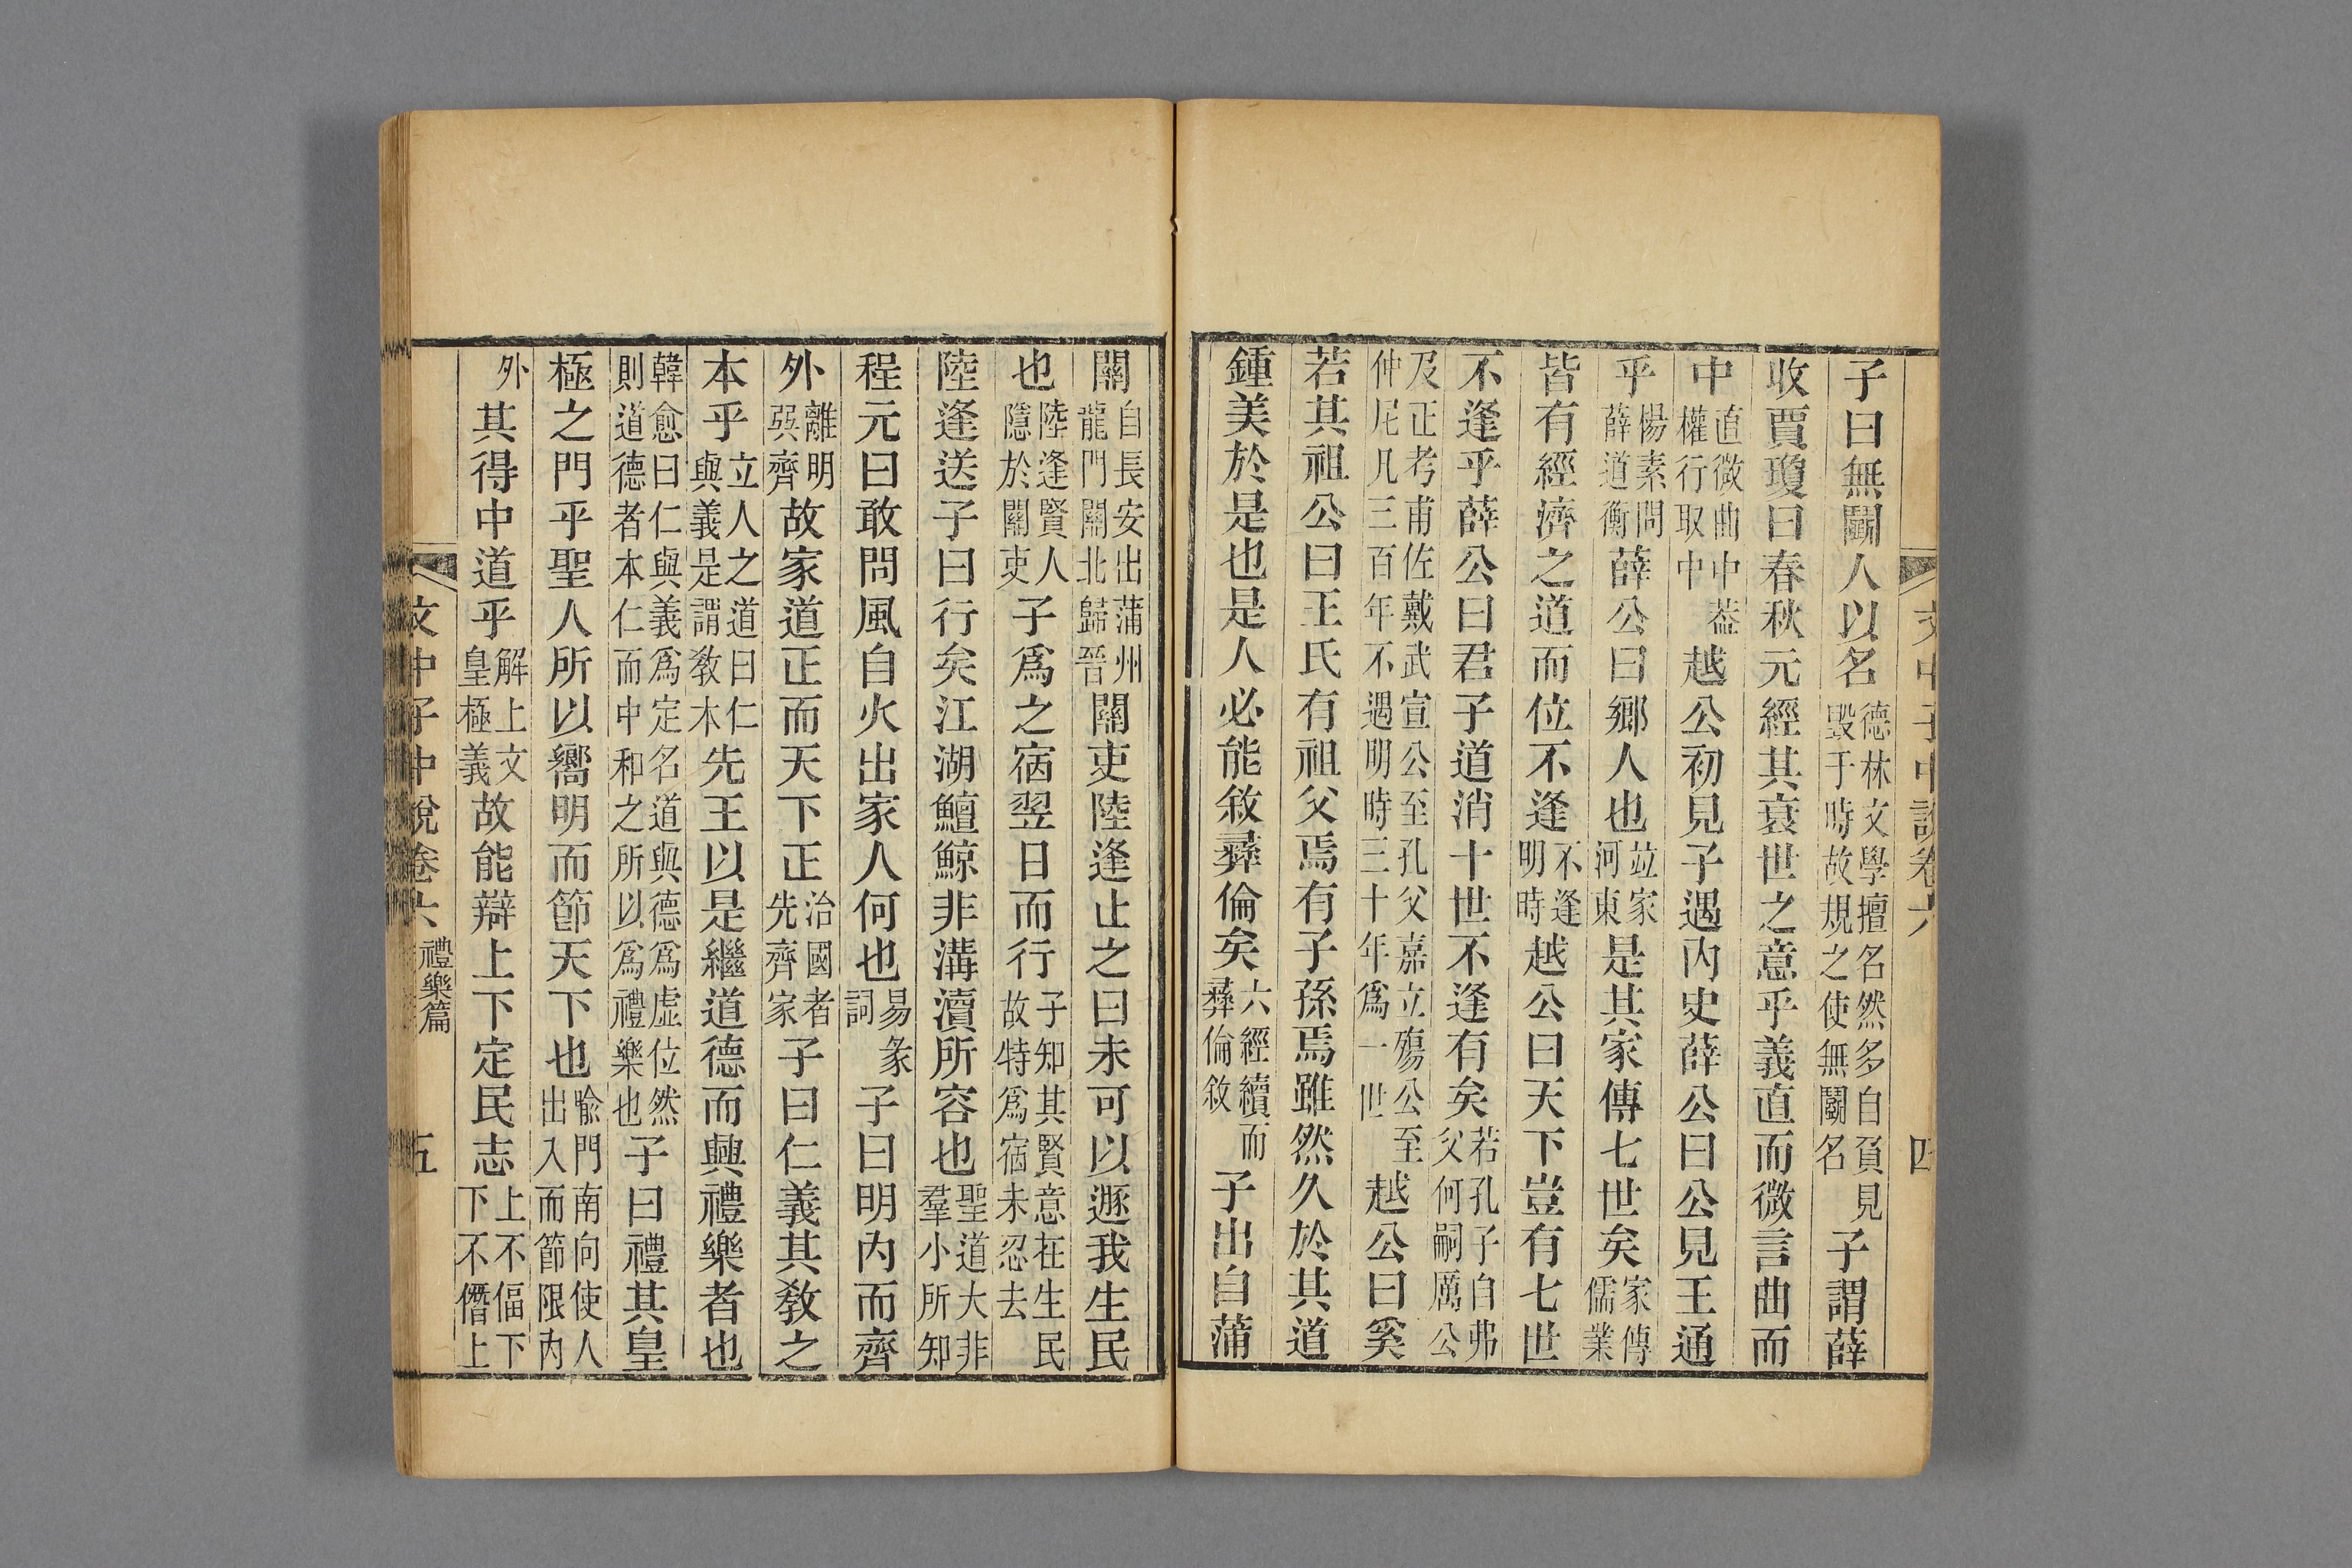 子曰無鬬人以名德林文學擅名然多自負見毀于時故規之使無鬬名子謂薛
收賈瓊曰春秋元經其衰世之意乎義直而微言曲而
中直微曲中中葢權行取中越公初見子遇内史薛公曰公見王通
乎楊素問薛道衡薛公曰鄉人也竝家河東是其家傳七世矣家傳儒業
皆有經濟之道而位不逢不逢明時越公曰天下豈有七世
不逢乎薛公曰君子道消十世不逢有矣若孔子自弗父何嗣厲公
及正考甫佐戴武宣公至孔父嘉立殤公至仲尼凡三百年不遇明時三十年爲一世越公曰奚
若其祖公曰王氏有祖父焉有子孫焉雖然久於其道
鍾美於是也是人必能敘彝倫矣六經續而彝倫敘子出自蒲
文中子中說卷六
四
關自長安出蒲州龍門關北歸晉關吏陸逢止之曰未可以遯我生民
也陸逢賢人隱於關吏子爲之宿翌日而行子知其賢意在生民故特爲宿未忍去
陸逢送子曰行矣江湖鱣鯨非溝瀆所容也聖道大非羣小所知
程元曰敢問風自火出家人何也易彖詞子曰明内而齊
外離明巽齊故家道正而天下正治國者先齊家子曰仁義其敎之
本乎立人之道曰仁與義是謂敎本先王以是繼道德而興禮樂者也
韓愈曰仁與義爲定名道與德爲虛位然則道德者本仁而中和之所以爲禮樂也子曰禮其皇
極之門乎聖人所以嚮明而節天下也喻門南向使人出入而節限内
外其得中道乎解上文皇極義故能辯上下定民志上不偪下下不僭上
文中子中說卷六 禮樂篇
五